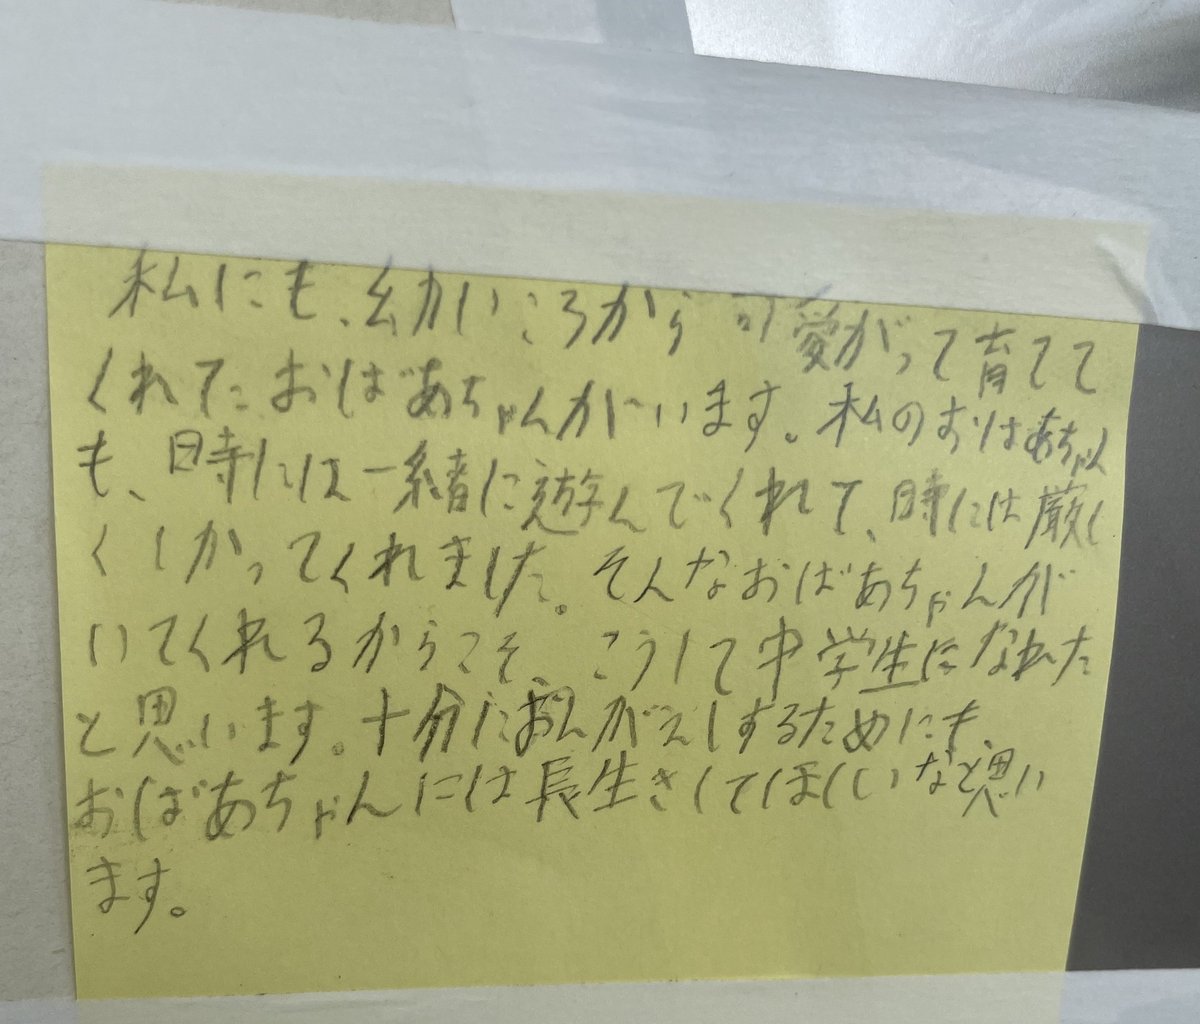 私にも、幼いころから可愛がって育てて
くれたおばあちゃんがいます。私のおばあちゃん
も、時には一緒に遊んでくれて、時には厳し
くしかってくれました。そんなおばあちゃんが
いてくれるからこそ、こうして中学生になれた
と思います。十分に恩がえしするためにも、
おばあちゃんには長生きしてほしいなと思い
ます。